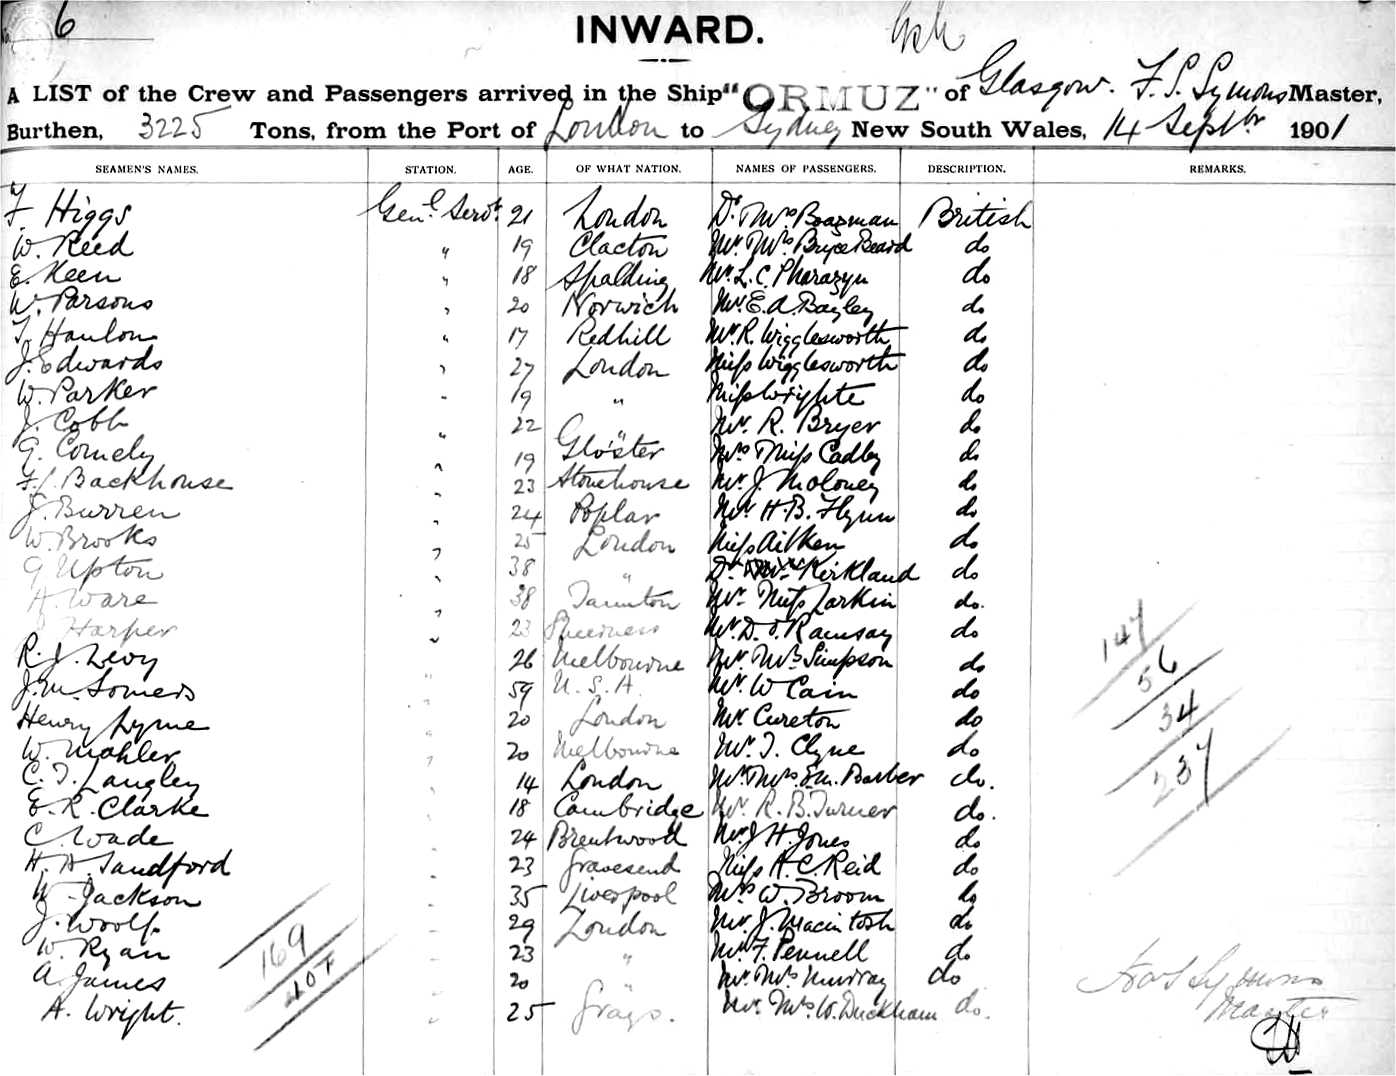 No. 6
INWARD.
A LIST of the Crew and Passengers arrived in the Ship "ORMUZ" of Glasgow. F. S. Symons Master,
Burthen, 3225 Tons, from the Port of London to Sydney New South Wales, 14 Septbr 1901
SEAMEN'S NAMES. STATION. AGE. OF WHAT NATION. NAMES OF PASSENGERS. DESCRIPTION. REMARKS.
F Higgs Genl. Servt. 21 London Dr Mrs Boazman British
W. Reed " 19 Clacton Mr. Mrs Bryce Beard do
E. Keen " 18 Spalding Mr. L. C. Pharazyn do
W. Parsons " 20 Norwich Mr. E. A. Bagley do
T. Hanlon " 17 Redhill Mr. R. Wigglesworth do
J. Edwards " 27 London Miss Wigglesworth do
W. Parker " 19 " Miss Wrighte do
J. Cobb " 22 " Mr. R. Bryer do
G. Comely " 19 Glo'ster Mrs Miss Cadby do
F. J. Backhouse " 23 Stonehouse Mr. J. Moloney do
J. Burren " 24 Poplar Mr H. B. Flynn do
W. Brooks " 25 London Miss Aitken do
G Upton " 38 " Dr Kirkland do
A. Ware " 38 Taunton Mr. Miss Larkin do.
Harper " 23 Sheerness Mr. D. J. Ramsay do
R. J. Levy " 26 Melbourne Mr. Mrs Simpson do
J. M. Somers " 59 U. S. A. Mr. W Cain do
Henry Lyme " 20 London Mr Cureton do
W. Mahler " 20 Melbourne Mr. T. Clyne do
C. T. Langley " 14 London Mr. Mrs. E. M. Barber do.
E. R. Clarke " 18 Cambridge Mr. R. B. Turner do.
C. Wade " 24 Brentwood Mr. J. H. Jones do
H. A. Sandford " 23 Gravesend Miss A. C. Reid do
W. Jackson " 35 Liverpool Mrs W. Broom do
J. Woolf " 29 London Mr. J. Macintosh do
W. Ryan " 23 " Mr. F. Pennell do
A James " 20 " Mr. Mrs Murray do
A. Wright. " 25 Grays. Mr. Mrs W. Duckham do.
147
56
34
237
169
407
Fras S Symons
Master